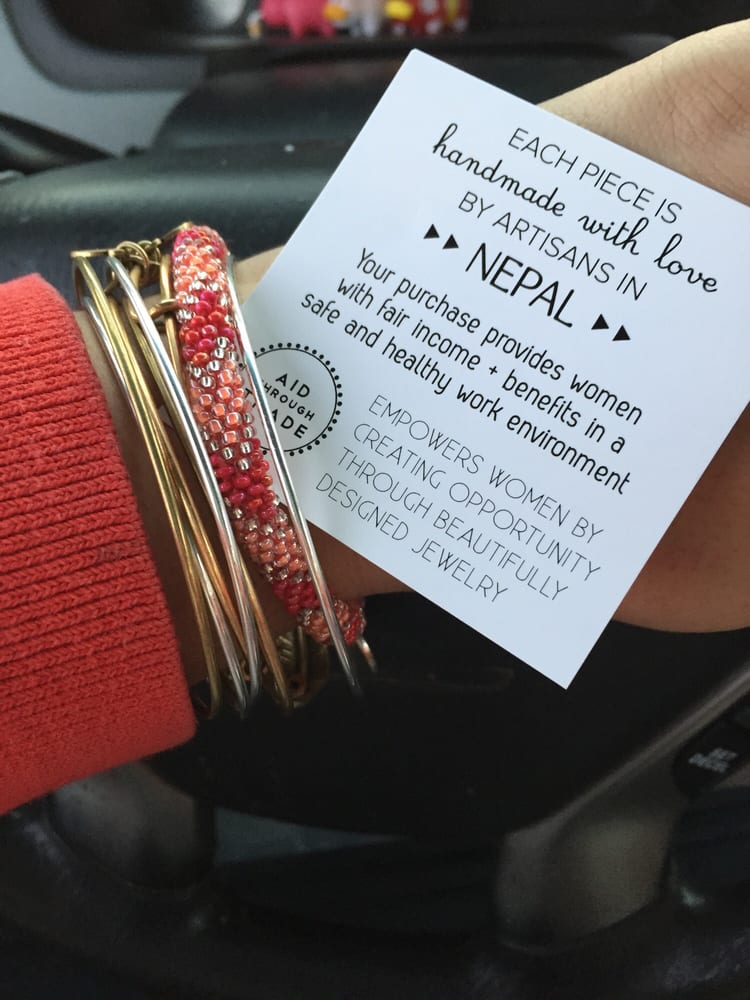 EACH PIECE IS
handmade with love
BY ARTISANS IN
NEPAL
Your purchase provides women
with fair income + benefits in a
safe and healthy work environment
AID
THROUGH
ADE
EMPOWERS WOMEN BY
CREATING OPPORTUNITY
THROUGH BEAUTIFULLY
DESIGNED JEWELRY